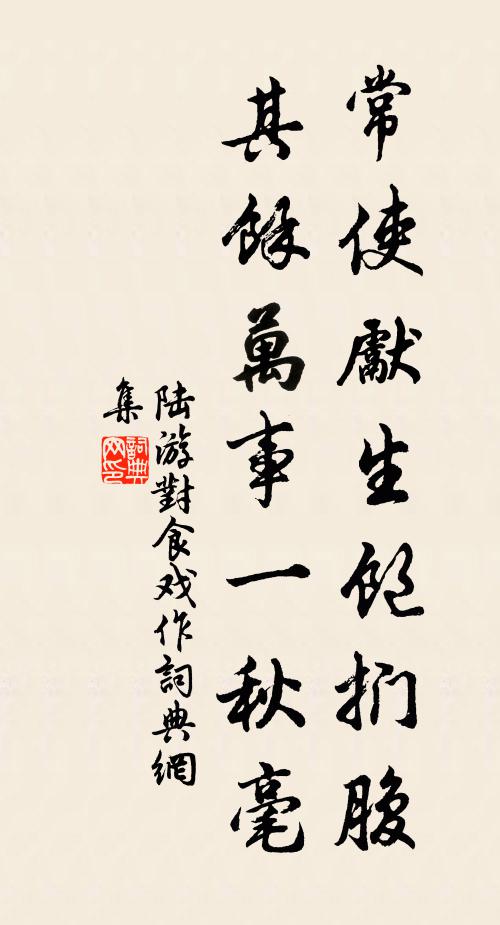 常使獻生飽捫腹
其餘萬事一秋毫
陆游對食戏作詞典網
集
詞典網印